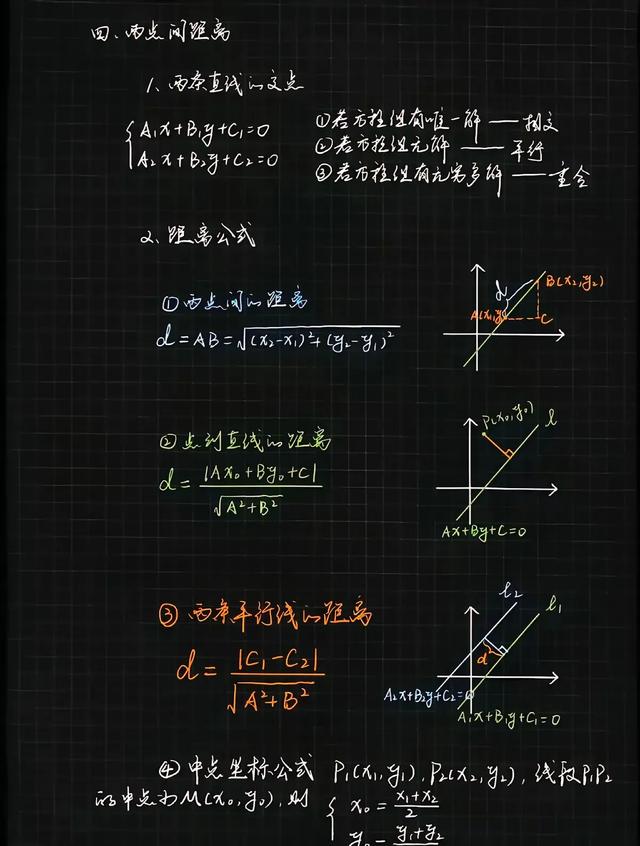 四、两点间距离
1、两条直线的交点
{A₁x+B₁y+C₁=0
A₂x+B₂y+C₂=0
①若方程组有唯一解——相交
②若方程组无解——平行
③若方程组有无穷多解——重合
2、距离公式
①两点间的距离
d=AB=√(x₂-x₁)²+(y₂-y₁)²
d
B(x₂,y₂)
A(x₁,y₁)
C
②点到直线的距离
d=|Ax₀+By₀+C|/√A²+B²
P(x₀,y₀)
l
Ax+By+C=0
③两条平行线的距离
d=|C₁-C₂|/√A²+B²
l₂
l₁
d
A₂x+B₂y+C₂=0
A₁x+B₁y+C₁=0
④中点坐标公式 P₁(x₁,y₁),P₂(x₂,y₂),线段P₁P₂
的中点为M(x₀,y₀),则{x₀=x₁+x₂/2
y₀=y₁+y₂